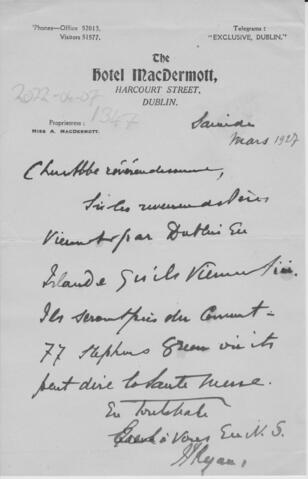 'Phones—Office 52013.
Visitors 51577.
Telegrams:
"EXCLUSIVE, DUBLIN."
The
Hotel MacDermott,
HARCOURT STREET,
DUBLIN.
2022-04-07
1347
Proprietress:
MISS A. MACDERMOTT.
Samedi
Mars 1927
Cher Abbé révérendissime,
Si les Pères
Viennent par Dublin En
Irlande qu'ils Viennent ici.
Ils seront près du Couvent
77 Stephens Green où ils
peut dire la Sainte Messe.
En toute hâte
à Vous En N. S.
Ryan,